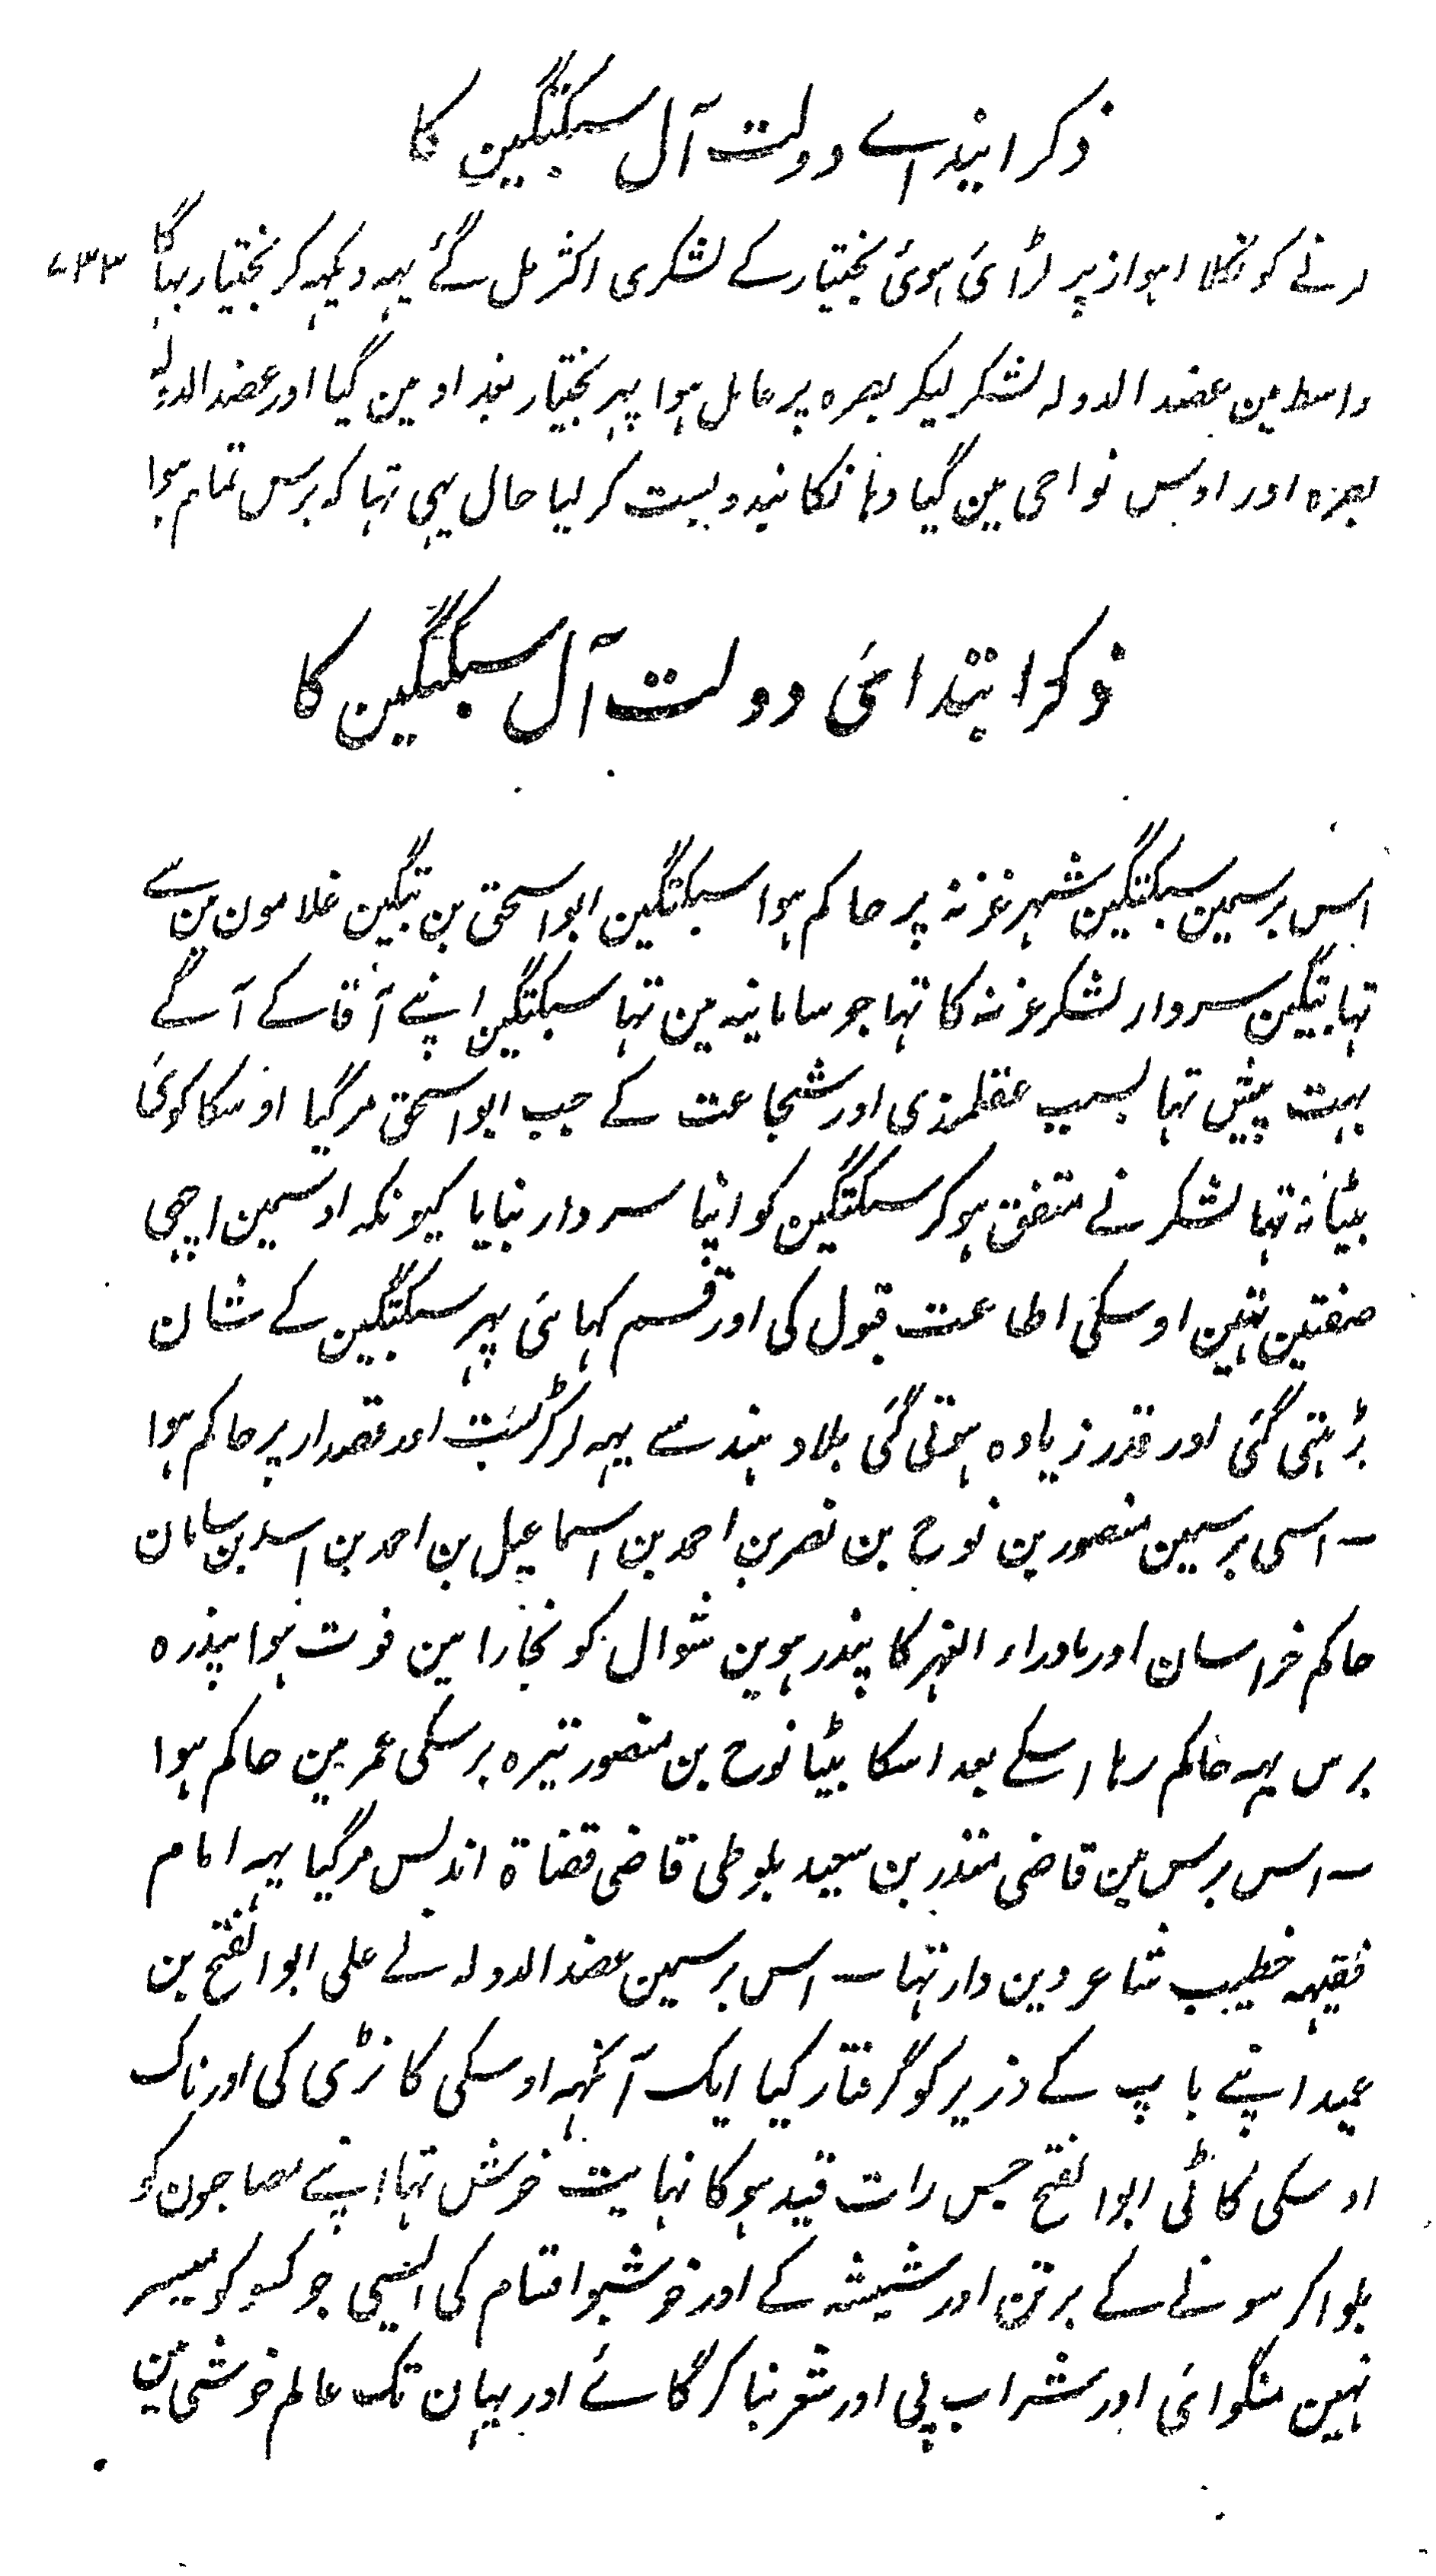 ذکر ابتداے دولت آل سبکتگین کا
لڑنے کو نکلا اہواز پر لڑائی ہوئی بختیار کے لشکری اکثر مل گئے یہہ دیکہہ کر بختیار بہاگا ۷۳۳
واسط مین عضد الدولہ لشکر لیکر بصرہ پر عامل ہوا پہر بختیار بغداد مین گیا اور عضد الدولہ
بصرہ اور اوس نواحی مین گیا وہانکا بندوبست کر لیا حال یہی تہا کہ برس تمام ہوا
ذکر ابتدائی دولت آل سبکتگین کا
اس برسمین سبکتگین شہر غزنہ پر حاکم ہوا سبکتگین ابو اسحق بن تبگین غلامون مین سے
تہا تبگین سردار لشکر غزنہ کا تہا جو سامانیہ مین تہا سبکتگین اپنے آقا کے آگے
بہت پیش تہا بسبب عقلمندی اور شجاعت کے جب ابو اسحق مر گیا اوسکا کوئی
بیٹا نہ تہا لشکر نے متفق ہوکر سبکتگین کو اپنا سردار بنایا کیونکہ اوسمین اچہی
صفتین تہین اوسکی اطاعت قبول کی اور قسم کہائی پہر سبکتگین کے شان
بڑہتی گئی اور قدر زیادہ ہوتی گئی بلاد ہند سے یہہ لڑ کر بست اور قصدار پر حاکم ہوا
۔ اسی برسمین منصور بن نوح بن نصر بن احمد بن اسماعیل بن احمد بن اسد بن سامان
حاکم خراسان اور ماوراء النہر کا پندرہوین شوال کو بخارا مین فوت ہوا پندرہ
برس یہہ حاکم رہا اسکے بعد اسکا بیٹا نوح بن منصور تیرہ برسکی عمر مین حاکم ہوا
۔ اس برس مین قاضی منذر بن سعید بلوطی قاضی قضاۃ اندلس مر گیا یہہ امام
فقیہہ خطیب شاعر دین دار تہا ۔ اس برسمین عضد الدولہ نے علی ابو الفتح بن
عمید اپنے باپ کے وزیر کو گرفتار کیا ایک آنکہہ اوسکی کانڑی کی اور ناک
اوسکی کاٹی ابو الفتح جس رات قید ہوگا نہایت خوش تہا اپنے مصاحبون کو
بلوا کر سونے کے برتن اور شیشہ کے اور خوشبو اقسام کی ایسی جو کسو کو میسر
نہین منگوائی اور شراب پی اور شعر بنا کر گائے اور یہان تک عالم خوشی مین